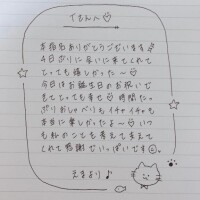 Tさんへ♡
お指名ありがとうございます
4日ぶりに会いに来てくれて
とっても嬉しかった〜♡
今日はお誕生日のお祝いで
きてとっても幸せ♡時間だった。
ぷりおしゃべりもイチャイチャも
本当に楽しかったよ〜♡いつ
も私のことを考えてくれて
くれて感謝でいっぱいです☺。
えまより♪